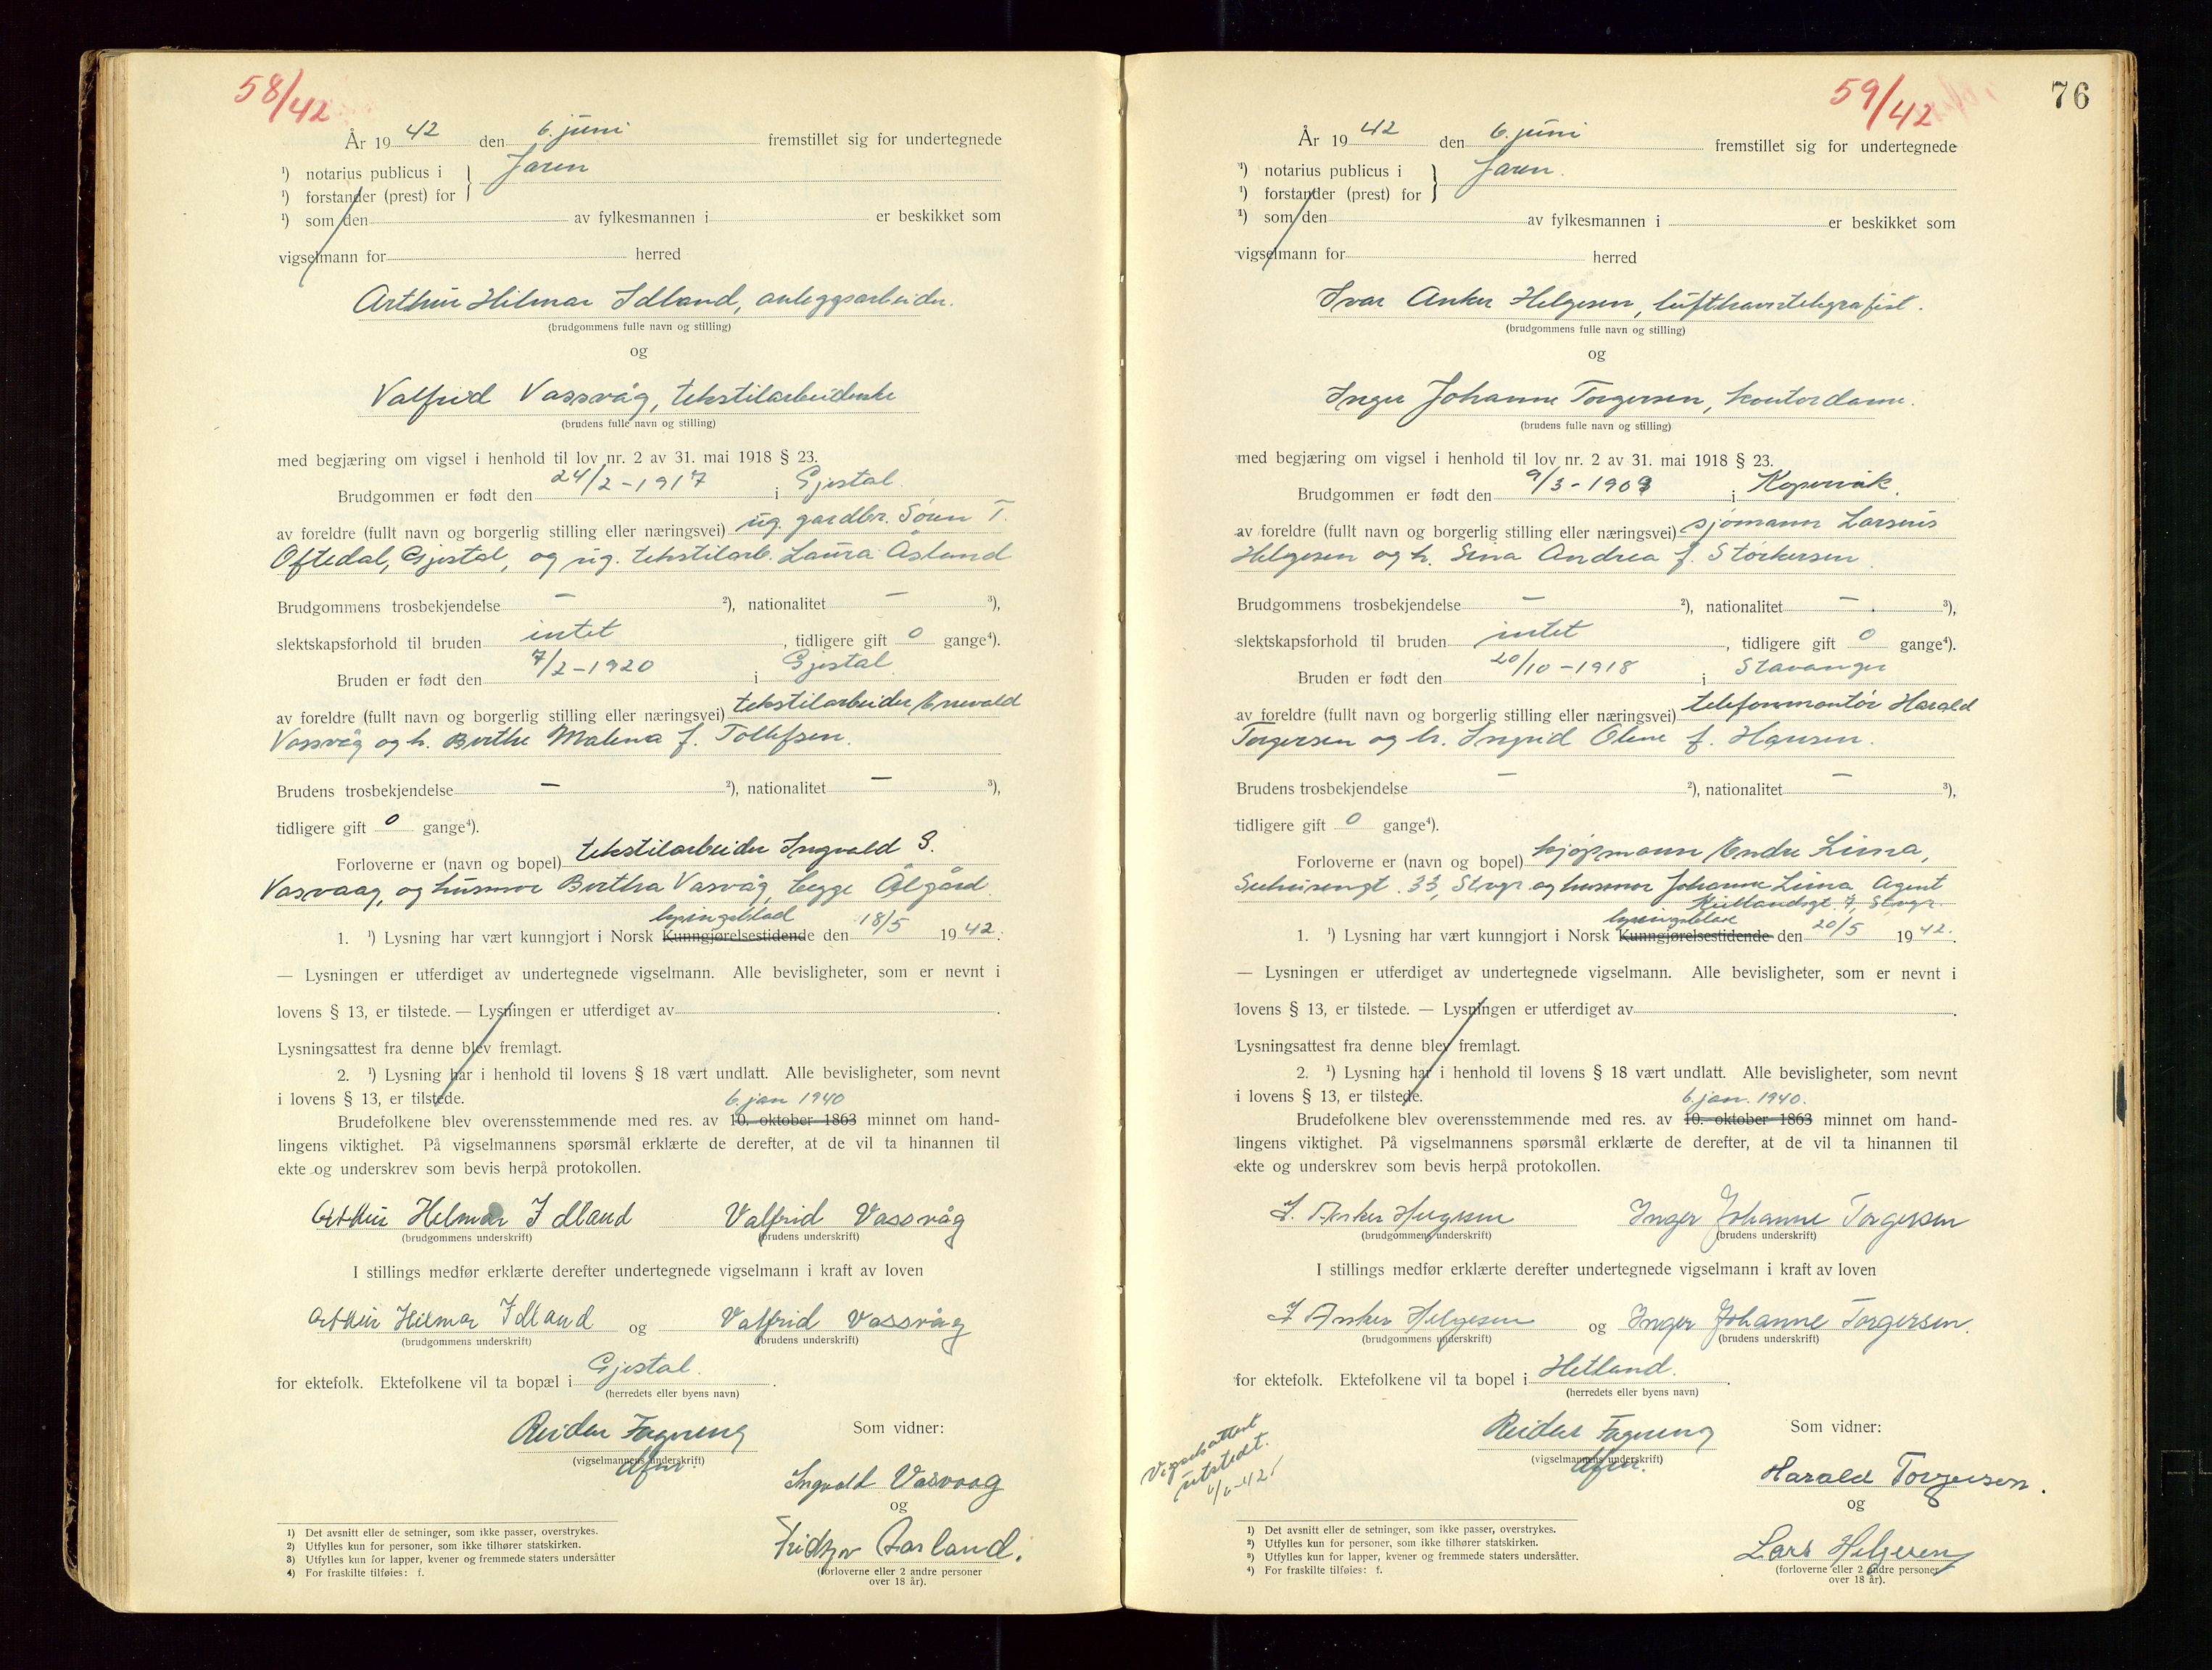 58/42
År 19 42 den 6. juni fremstillet sig for undertegnede
¹) notarius publicus i } Jæren
¹) forstander (prest) for
¹) som den av fylkesmannen i er beskikket som
vigselmann for herred
Arthur Hilmar Idland, anleggsarbeider.
(brudgommens fulle navn og stilling)
og
Valfrid Vassvåg, tekstilarbeiderske
(brudens fulle navn og stilling)
med begjæring om vigsel i henhold til lov nr. 2 av 31. mai 1918 § 23.
Brudgommen er født den 24/2-1917 i Gjestal.
av foreldre (fullt navn og borgerlig stilling eller næringsvei) ug. gardbr. Sören T.
Oftedal, Gjestal, og ug. tekstilarb. Laura Åsland
Brudgommens trosbekjendelse — ²), nationalitet — ³),
slektskapsforhold til bruden intet, tidligere gift 0 gange⁴).
Bruden er født den 7/2-1920 i Gjestal
av foreldre (fullt navn og borgerlig stilling eller næringsvei) tekstilarbeider Enevald
Vassvåg og h. Berthe Malena f. Tollefsen.
Brudens trosbekjendelse — ²), nationalitet — ³),
tidligere gift 0 gange⁴).
Forloverne er (navn og bopel) tekstilarbeider Ingvald S.
Vasvaag, og husmor Bertha Vasvåg, begge Ålgård.
lysingsblad
1. ¹) Lysning har vært kunngjort i Norsk Kunngjørelsestidende den 18/5 19 42.
— Lysningen er utferdiget av undertegnede vigselmann. Alle bevisligheter, som er nevnt i
lovens § 13, er tilstede. — Lysningen er utferdiget av .
Lysningsattest fra denne blev fremlagt.
2. ¹) Lysning har i henhold til lovens § 18 vært undlatt. Alle bevisligheter, som nevnt
i lovens § 13, er tilstede.
6. jan 1940
Brudefolkene blev overensstemmende med res. av 10. oktober 1863 minnet om hand-
lingens viktighet. På vigselmannens spørsmål erklærte de derefter, at de vil ta hinannen til
ekte og underskrev som bevis herpå protokollen.
Arthur Hilmar Idland Valfrid Vassvåg
(brudgommens underskrift) (brudens underskrift)
I stillings medfør erklærte derefter undertegnede vigselmann i kraft av loven
Arthur Hilmar Idland og Valfrid Vassvåg
(brudgommens underskrift) (brudens underskrift)
for ektefolk. Ektefolkene vil ta bopæl i Gjestal.
(herredets eller byens navn)
Reidar Fagreng Som vidner:
(vigselmannens underskrift)
dfm.
Ingvald Vasvaag
og
Fridtjov Aasland.
(forloverne eller 2 andre personer
over 18 år).
1) Det avsnitt eller de setninger, som ikke passer, overstrykes.
2) Utfylles kun for personer, som ikke tilhører statskirken.
3) Utfylles kun for lapper, kvener og fremmede staters undersåtter
4) For fraskilte tilføies: f.
59/42
76
År 19 42 den 6. juni fremstillet sig for undertegnede
¹) notarius publicus i } Jæren.
¹) forstander (prest) for
¹) som den av fylkesmannen i er beskikket som
vigselmann for herred
Ivar Anker Helgesen, lufthavntelegrafist.
(brudgommens fulle navn og stilling)
og
Inger Johanne Torgersen, kontordame.
(brudens fulle navn og stilling)
med begjæring om vigsel i henhold til lov nr. 2 av 31. mai 1918 § 23.
Brudgommen er født den 9/3-1909 i Kopervik.
av foreldre (fullt navn og borgerlig stilling eller næringsvei) sjömann Larsens
Helgesen og h. Sina Andrea f. Störkersen.
Brudgommens trosbekjendelse — ²), nationalitet — ³),
slektskapsforhold til bruden intet, tidligere gift 0 gange⁴).
Bruden er født den 20/10-1918 i Stavanger
av foreldre (fullt navn og borgerlig stilling eller næringsvei) telefonmontör Harald
Torgersen og h. Ingrid Olene f. Hansen.
Brudens trosbekjendelse — ²), nationalitet — ³),
tidligere gift 0 gange⁴).
Forloverne er (navn og bopel) kjöpmann Endre Lima,
33, Stvgr og husmor Johanne Lima, Agent
7, Stvgr.
1. ¹) Lysning har vært kunngjort i Norsk Kunngjørelsestidende den 20/5 19 42.
— Lysningen er utferdiget av undertegnede vigselmann. Alle bevisligheter, som er nevnt i
lovens § 13, er tilstede. — Lysningen er utferdiget av .
Lysningsattest fra denne blev fremlagt.
2. ¹) Lysning har i henhold til lovens § 18 vært undlatt. Alle bevisligheter, som nevnt
i lovens § 13, er tilstede.
6. jan. 1940.
Brudefolkene blev overensstemmende med res. av 10. oktober 1863 minnet om hand-
lingens viktighet. På vigselmannens spørsmål erklærte de derefter, at de vil ta hinannen til
ekte og underskrev som bevis herpå protokollen.
I. Anker Helgesen Inger Johanne Torgersen
(brudgommens underskrift) (brudens underskrift)
I stillings medfør erklærte derefter undertegnede vigselmann i kraft av loven
I Anker Helgesen og Inger Johanne Torgersen.
(brudgommens underskrift) (brudens underskrift)
for ektefolk. Ektefolkene vil ta bopel i Hetland.
(herredets eller byens navn)
Vigselsattest
utstedt.
6/6-42
Reidar Fagreng Som vidner:
(vigselmannens underskrift)
dfm.
Harald Torgersen.
og
Lars Helgesen
(forloverne eller 2 andre personer
over 18 år).
¹) Det avsnitt eller de setninger, som ikke passer, overstrykes.
²) Utfylles kun for personer, som ikke tilhører statskirken.
³) Utfylles kun for lapper, kvener og fremmede staters undersåtter.
⁴) For fraskilte tilføies: f.